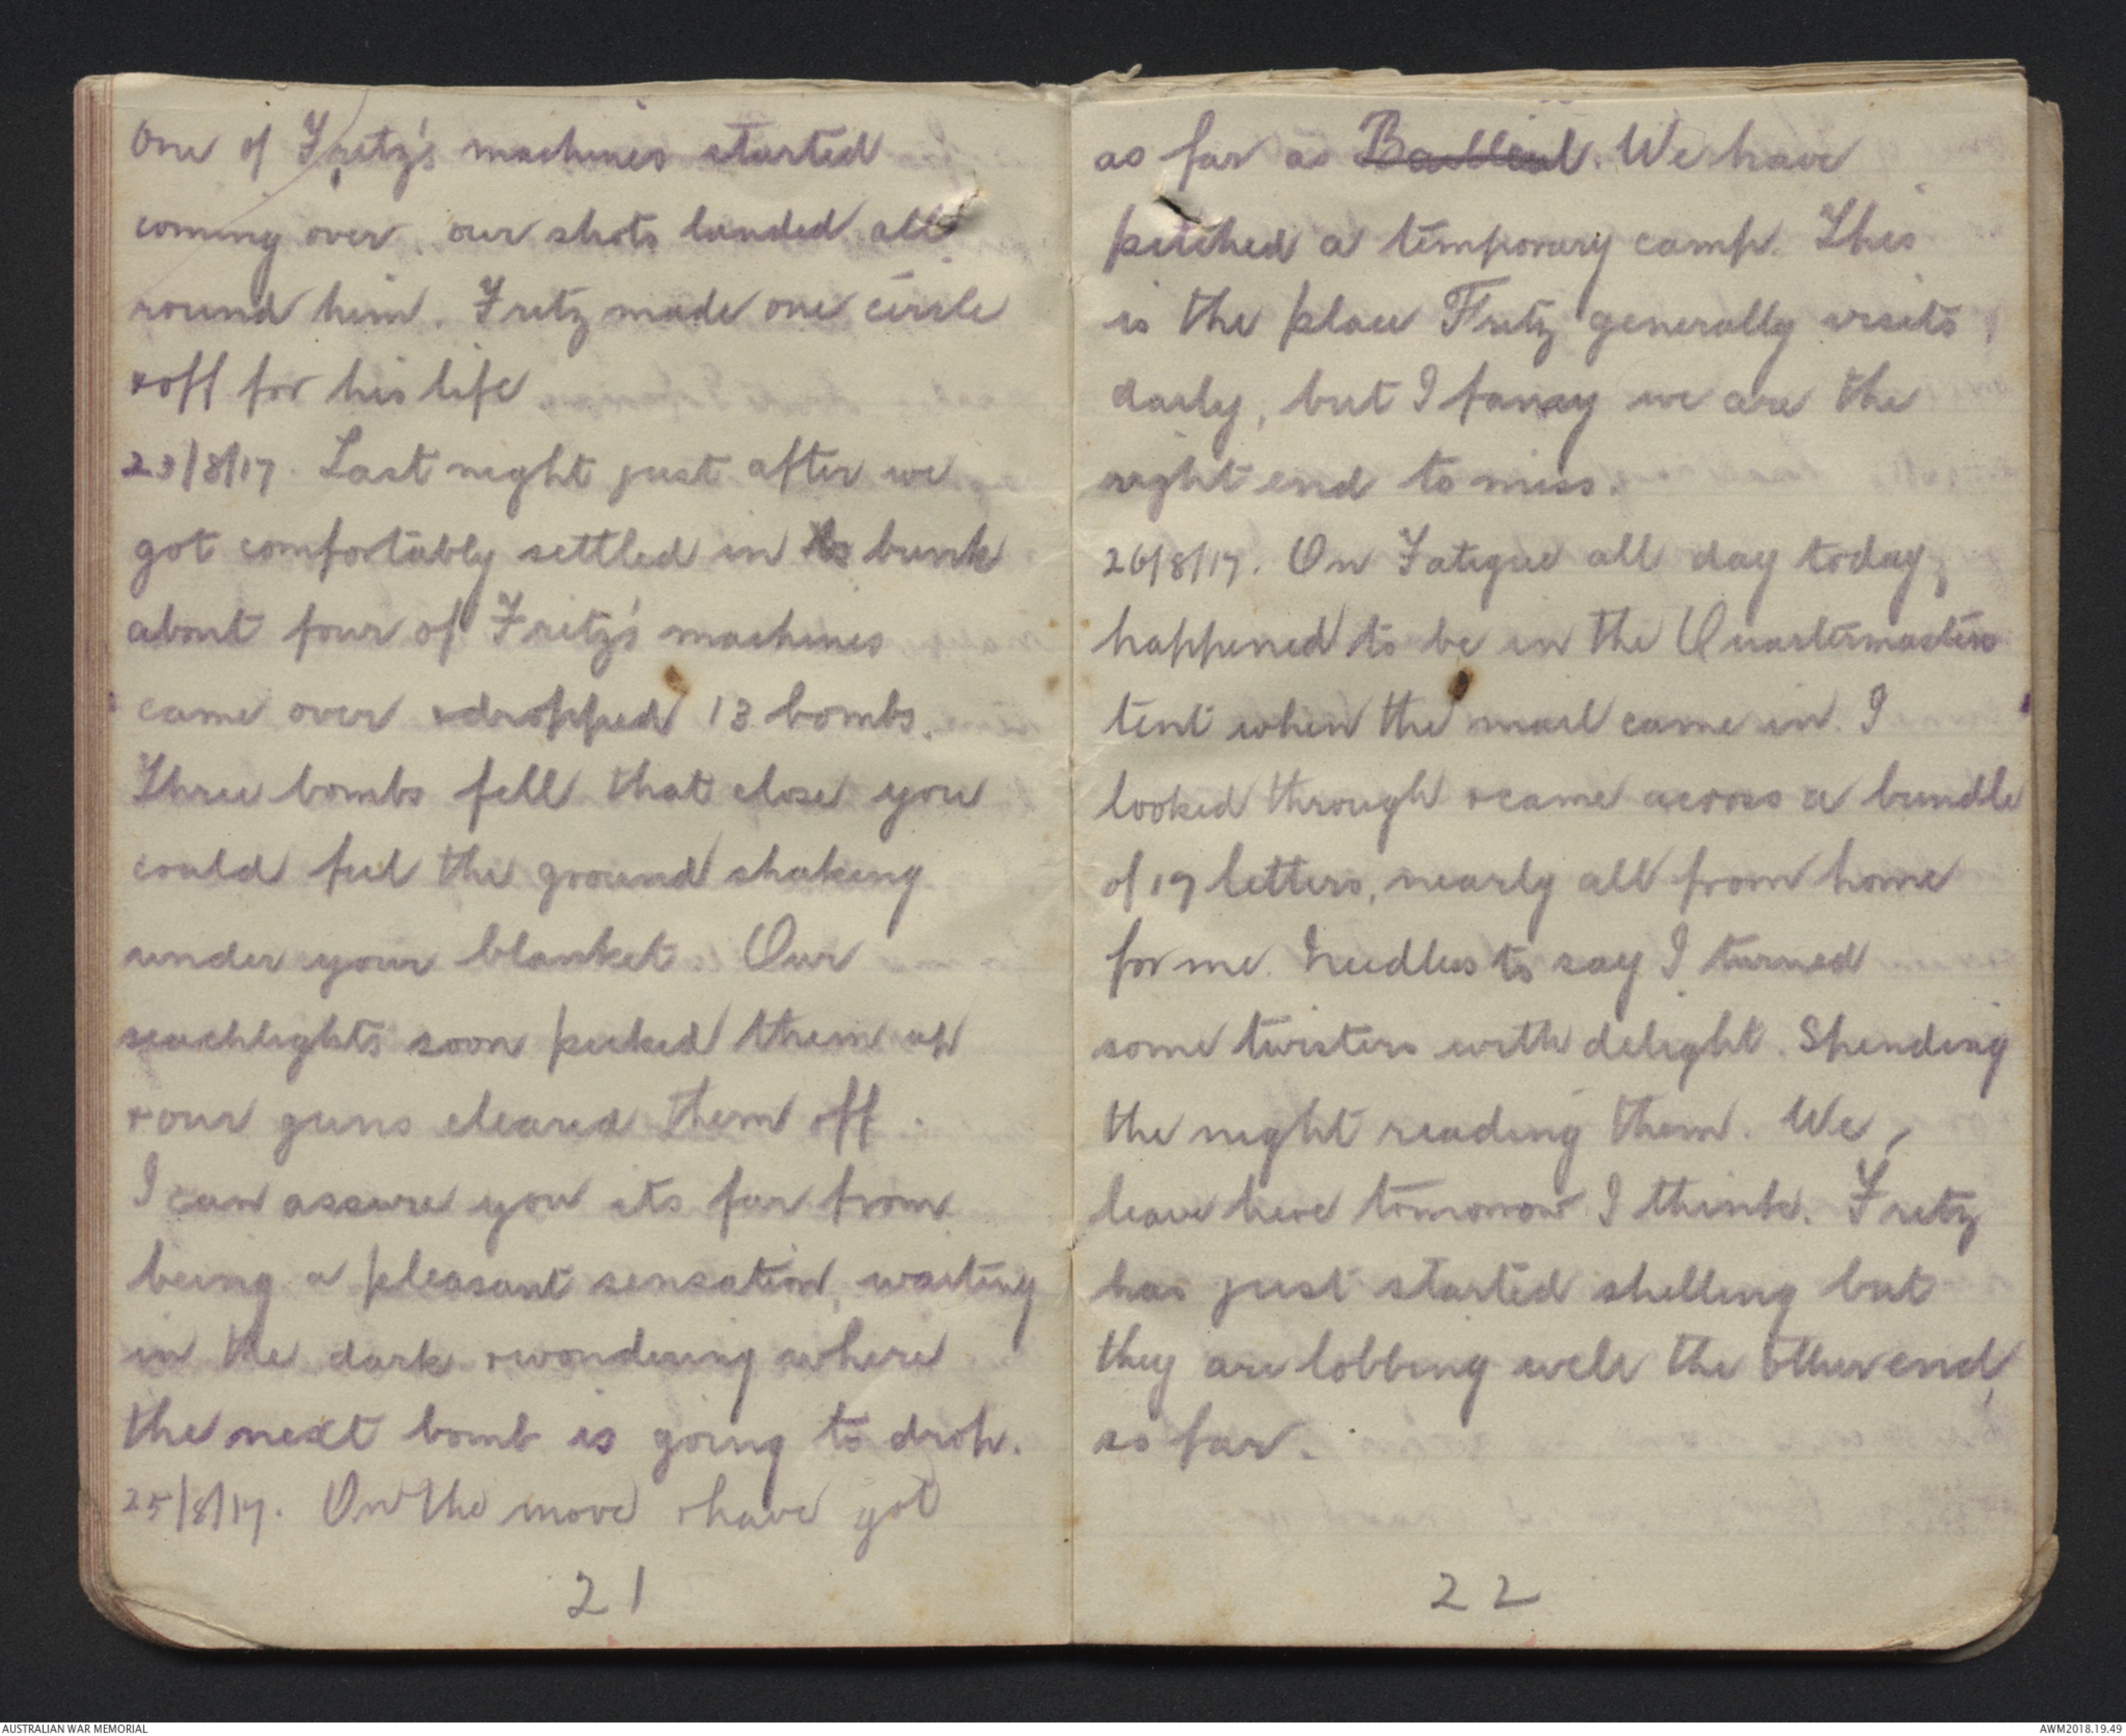 One of Fritz's machines started
coming over. our shots landed all
round him. Fritz made one circle
+ off for his life
23/8/17. Last night just after we
got comfortably settled in bunk
about four of Fritz's machines
came over + dropped 13 bombs.
Three bombs fell that close you
could feel the ground shaking
under your blanket. Our
seachlights soon picked them up
+ our guns cleared them off.
I can assure you its far from
being a pleasant sensation, waiting
in the dark + wondering where
the next bomb is going to drop.
25/8/17. On the move + have got
21
as far as Bailleul. We have
pitched a temporary camp. This
is the place Fritz generally visits
daily, but I fancy we are the
right end to miss.
26/8/17. On Fatigue all day today,
happened to be in the Quartermasters
tent when the mail came in. I
looked through + came across a bundle
of 19 letters, nearly all from home
for me. Needless to say I turned
some twisters with delight. Spending
the night reading them. We
leave here tomorrow I think. Fritz
has just started shelling but
they are lobbing well the other end,
so far.
22
AUSTRALIAN WAR MEMORIAL
AWM2018.19.49